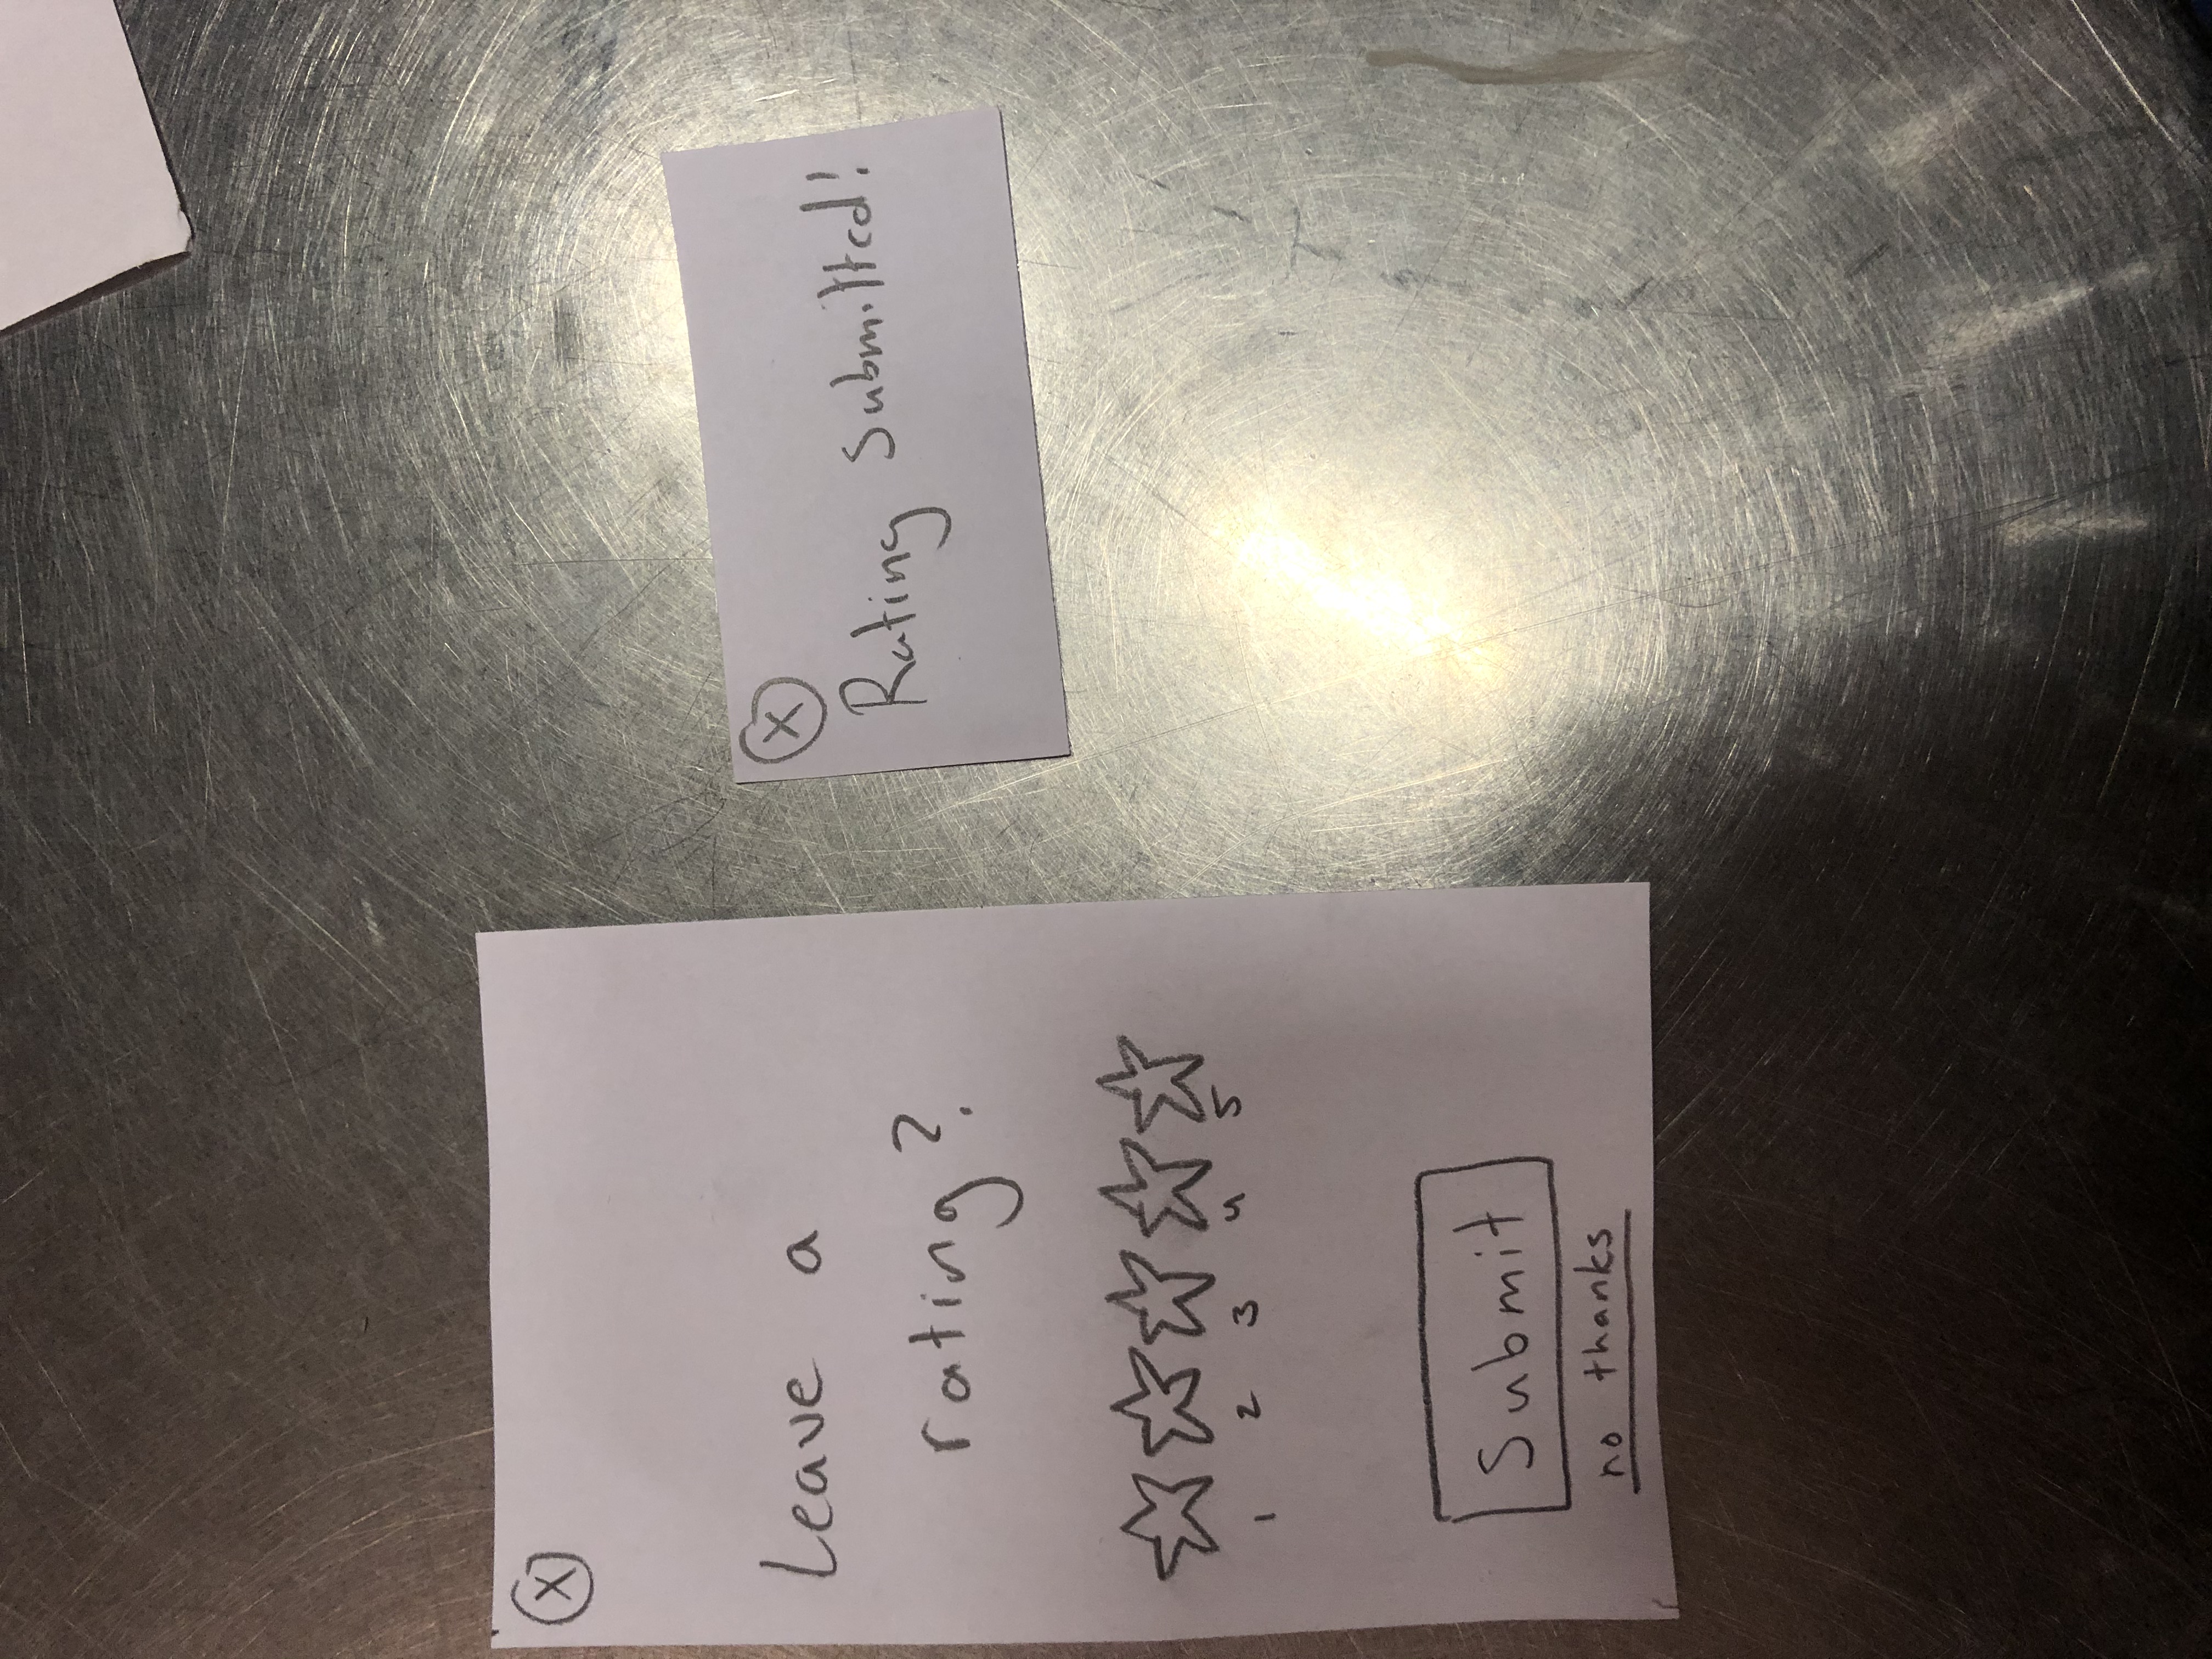 X
Leave a
rating?
1 2 3 4 5
Submit
no thanks
X
Rating Submitted!